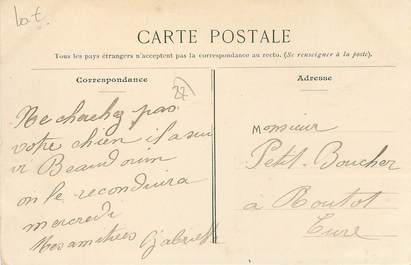 Lot.
CARTE POSTALE
Tous les pays étrangers n'acceptent pas la correspondance au recto. (Se renseigner à la poste.)
Correspondance
27
Ne cherchez pas
votre chien il a sui
vi Beaudouin
on le reconduira
mercredi
Mes amitiés Gabriel
Adresse
Monsieur
Petit-Boucher
à Routot
Eure